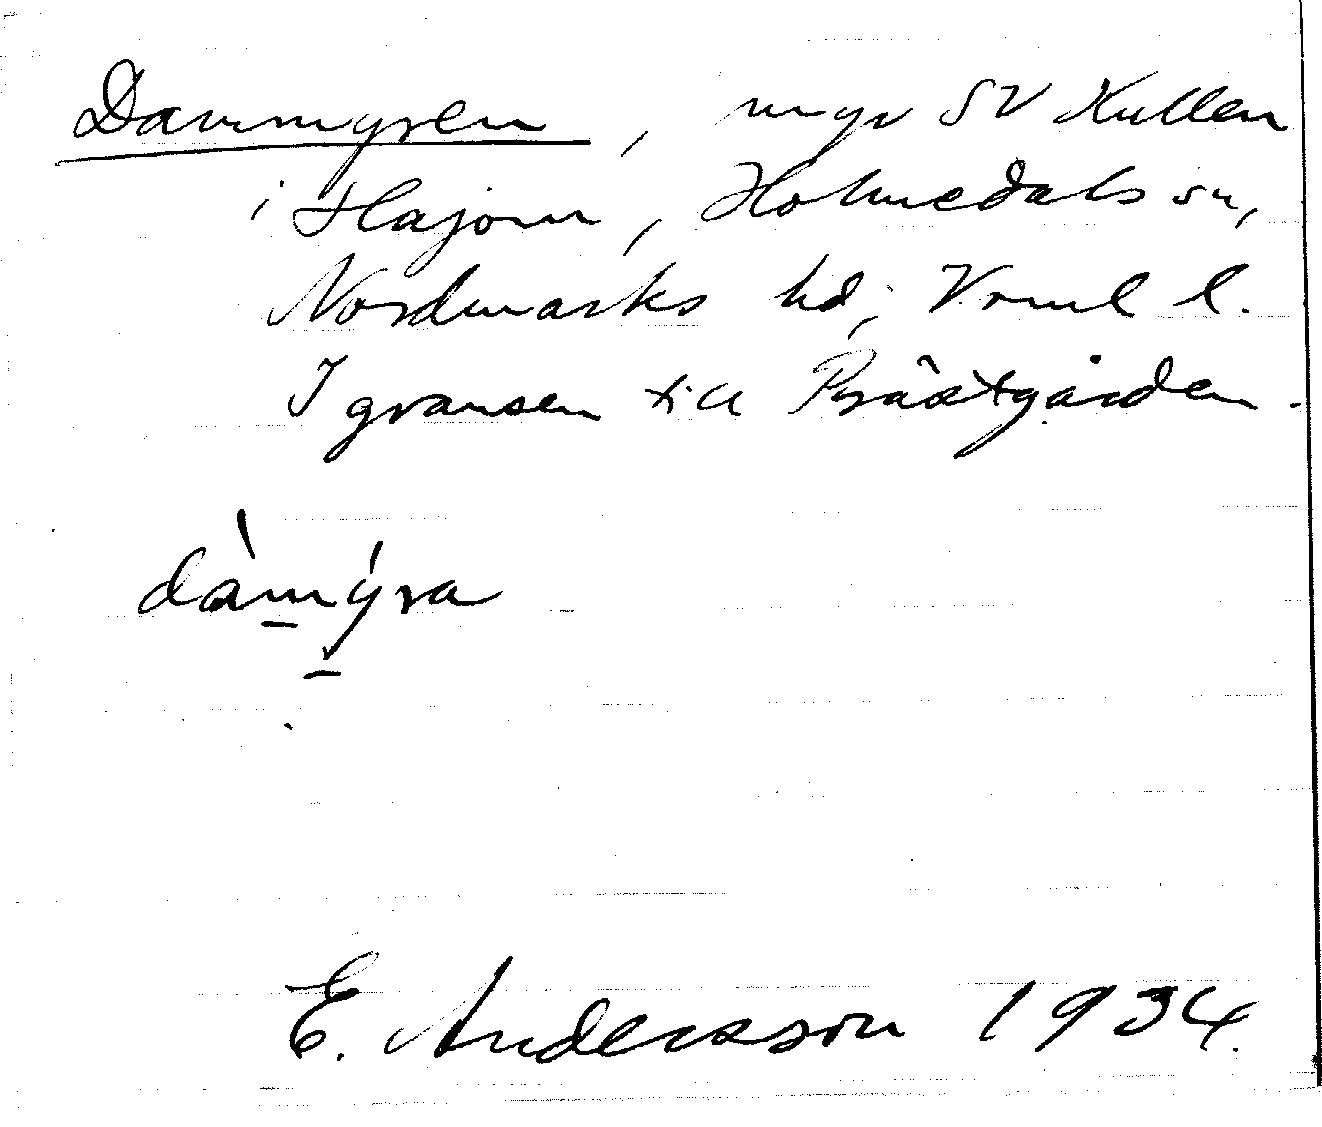 Dammyren, myr SV Kullen
i Hajom, Holmedals sn,
Nordmarks hd, Vrml l.
I gransen till Prästgården.
dàmýra
E. Andersson 1934.